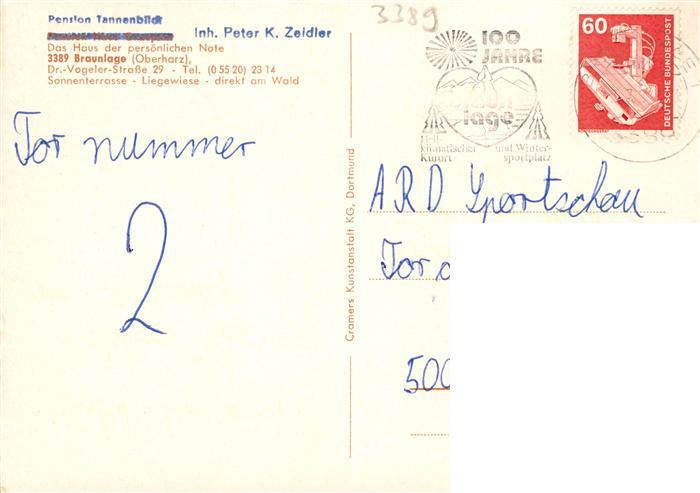 Pension Tannenbild
Inh. Peter K. Zeidler
Das Haus der persönlichen Note
3389 Braunlage (Oberharz),
Dr.-Vogeler-Straße 29 - Tel. (0 55 20) 23 14
Sonnenterrasse - Liegewiese - direkt am Wald
3389
100
JAHRE
lage
Heil-
klimatischer
Kurort
und Winter-
sportplatz
60
DEUTSCHE BUNDESPOST
Tor nummer
2
Cramers Kunstanstalt KG, Dortmund
ARD Sportschau
Tor d
500